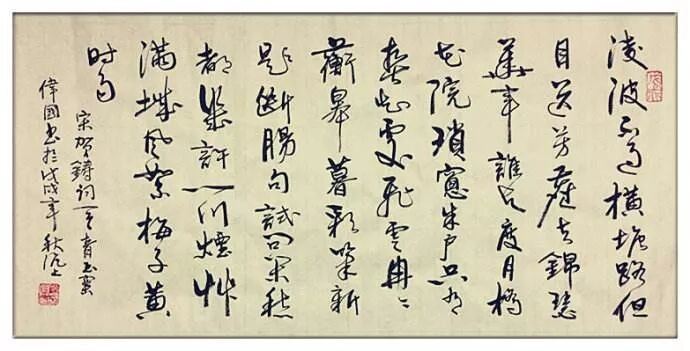 淩波不過橫塘路但
目送芳塵去錦瑟
華年誰与度月橋
花院瑣窓朱戶只有
春知處飛雲冉〻
蘅皋暮彩筆新
題斷腸句試問閑愁
都幾許一川煙艸
滿城風絮梅子黃
時雨
宋賀鑄詞一首青玉案
偉國書於戊戌年秋上